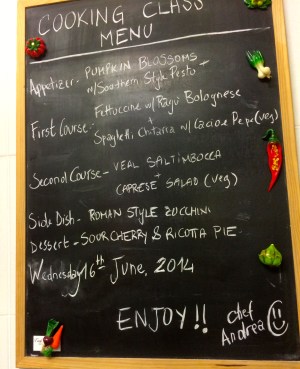 COOKING CLASS
MENU
Appetizer - PUMPKIN BLOSSOMS
w/Southern Style Pesto
First Course - Fettuccine w/ Ragù Bolognese
+
Spaghetti Chitarra w/ Cacio e Pepe (veg)
Second Course - VEAL SALTIMBOCCA
+
CAPRESE SALAD (veg)
Side Dish - ROMAN STYLE ZUCCHINI
Dessert - SOUR CHERRY & RICOTTA PIE
Wednesday 16th June, 2014
ENJOY!!
chef
Andrea